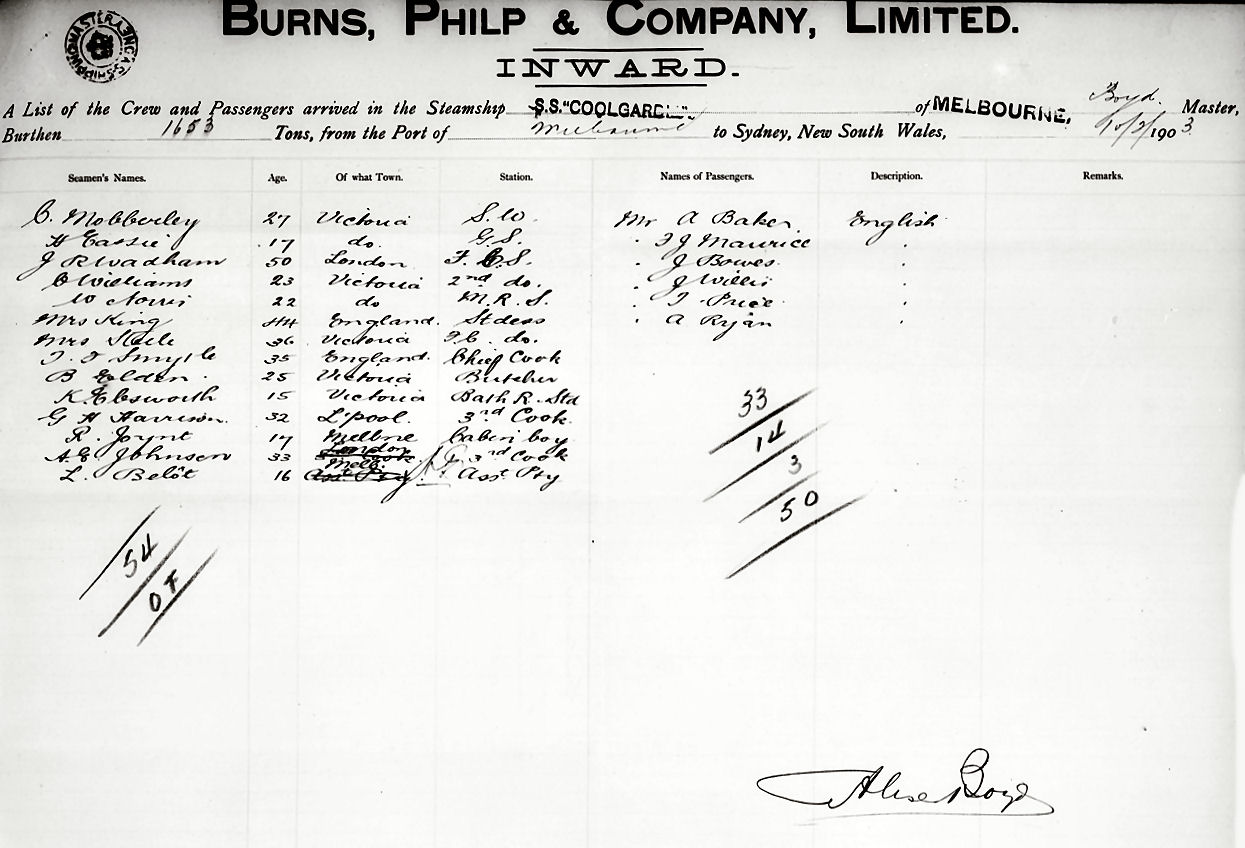 BURNS, PHILP & COMPANY, LIMITED.
INWARD.
A List of the Crew and Passengers arrived in the Steamship S.S. "COOLGARDIE" of MELBOURNE, Boyd. Master,
Burthen 1653 Tons, from the Port of Melbourne to Sydney, New South Wales, 10/2/1903
Seamen's Names. Age. Of what Town. Station. Names of Passengers. Description. Remarks.
C. Mobberley 27 Victoria S.W. Mr A Baker English
H Cassie 17 do. G.S. " J Maurice "
J R Wadham 50 London F.C.S. " J Bowes "
C Williams 23 Victoria 2nd do. " J Willis "
W Norris 22 do M.R.S. " T Price "
Mrs King 44 England. Stdess " A Ryan "
Mrs Steele 36 Victoria F.C. do.
35 England. Chief Cook
B Golden 25 Victoria Butcher
K Ebsworth 15 Victoria Bath R. Std
G H Harrison 32 L'pool. 3rd Cook
R. Joynt 17 Melbne Cabin boy
A G Johnson 33 London 3rd Cook
L. Belôt 16 Melb. Asst Pty
33
14
3
50
54
Boyd